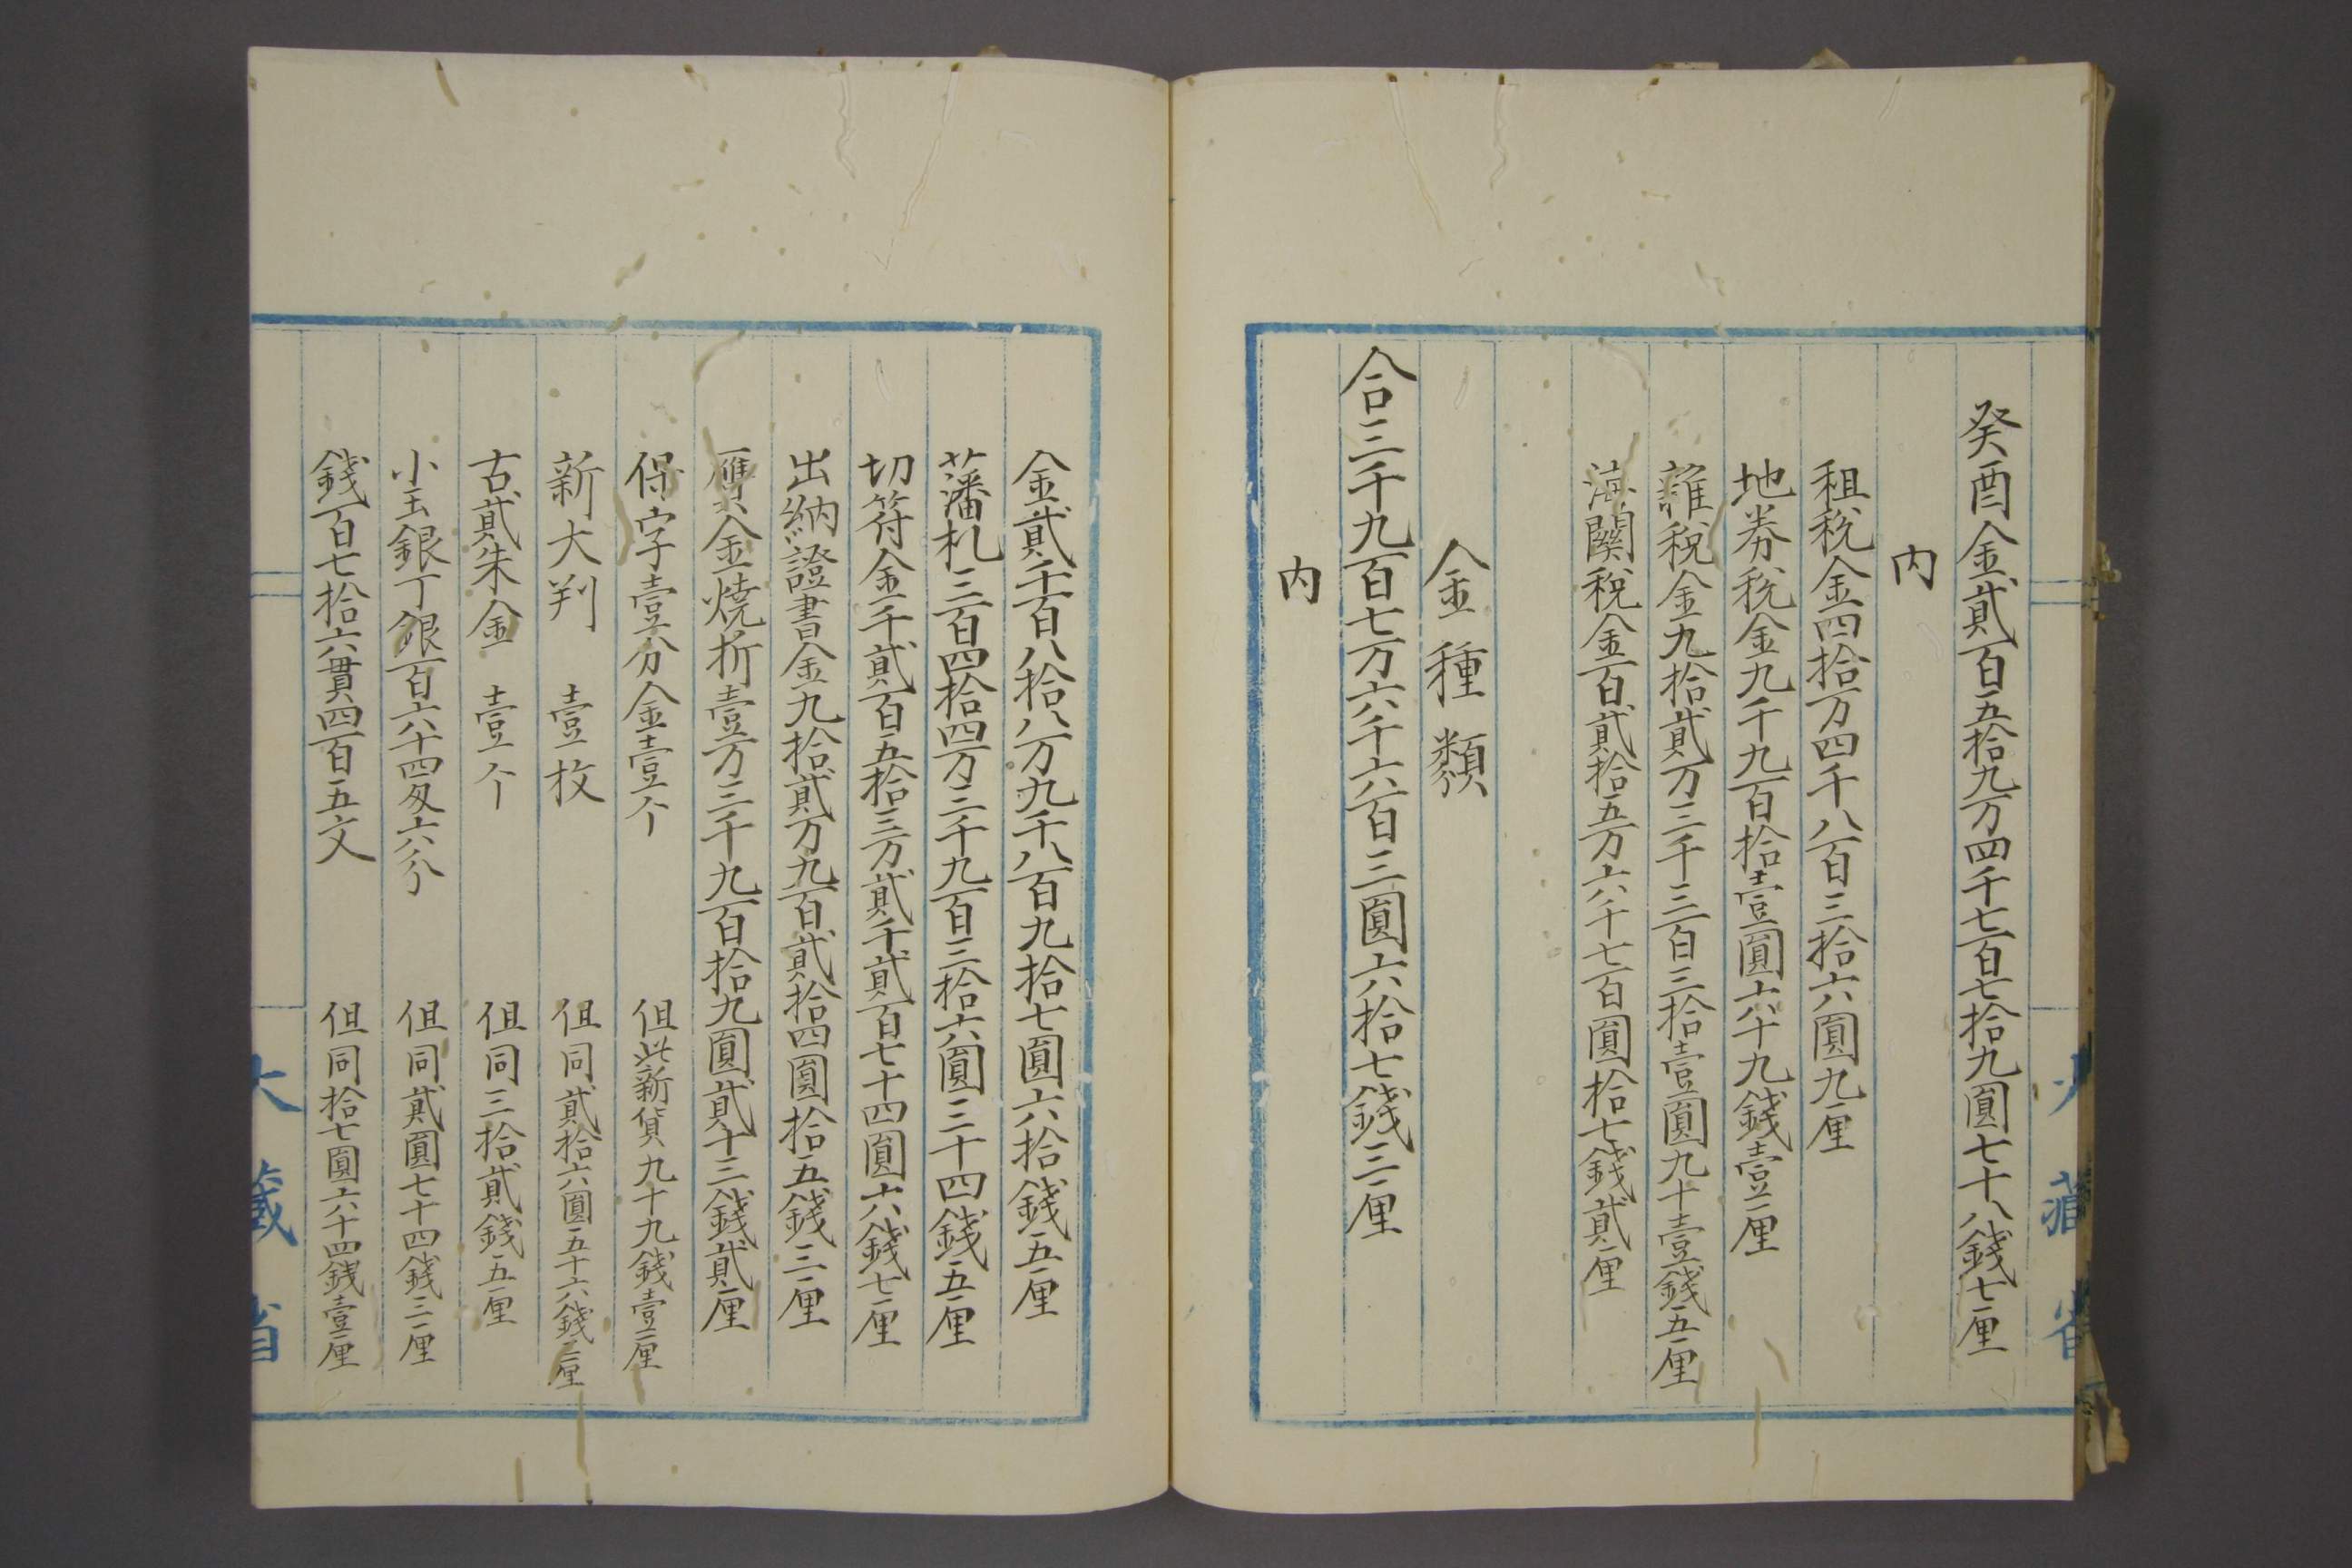 癸酉金貳百五拾九万四千七百七拾九圓七十八錢七厘
内
租税金四拾万四千八百三拾六圓九厘
地券税金九千九百拾壹圓六十九錢壹厘
雜税金九拾貳万三千三百三拾壹圓九十壹錢五厘
海關税金百貳拾五万六千七百圓拾七錢貳厘
金種類
合三千九百七万六千六百三圓六拾七錢三厘
内
大藏省
金貳千百八拾八万九千八百九拾七圓六拾錢五厘
藩札三百四拾四万三千九百三拾六圓三十四錢五厘
切符金千貳百五拾三万貳千貳百七十四圓六錢七厘
出納證書金九拾貳万九百貳拾四圓拾五錢三厘
贋金焼折壹万三千九百拾九圓貳十三錢貳厘
保字壹分金壹个 但此新貨九十九錢壹厘
新大判 壹枚 但同貳拾六圓五十六錢三厘
古貳朱金 壹个 但同三拾貳錢五厘
小玉銀丁銀百六十四匁六分 但同貳圓七十四錢三厘
錢百七拾六貫四百五文 但同拾七圓六十四錢壹厘
大藏省